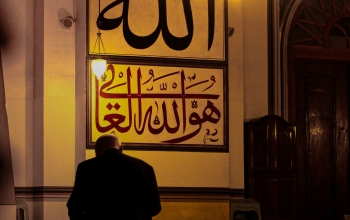 الله
هو الله العلي